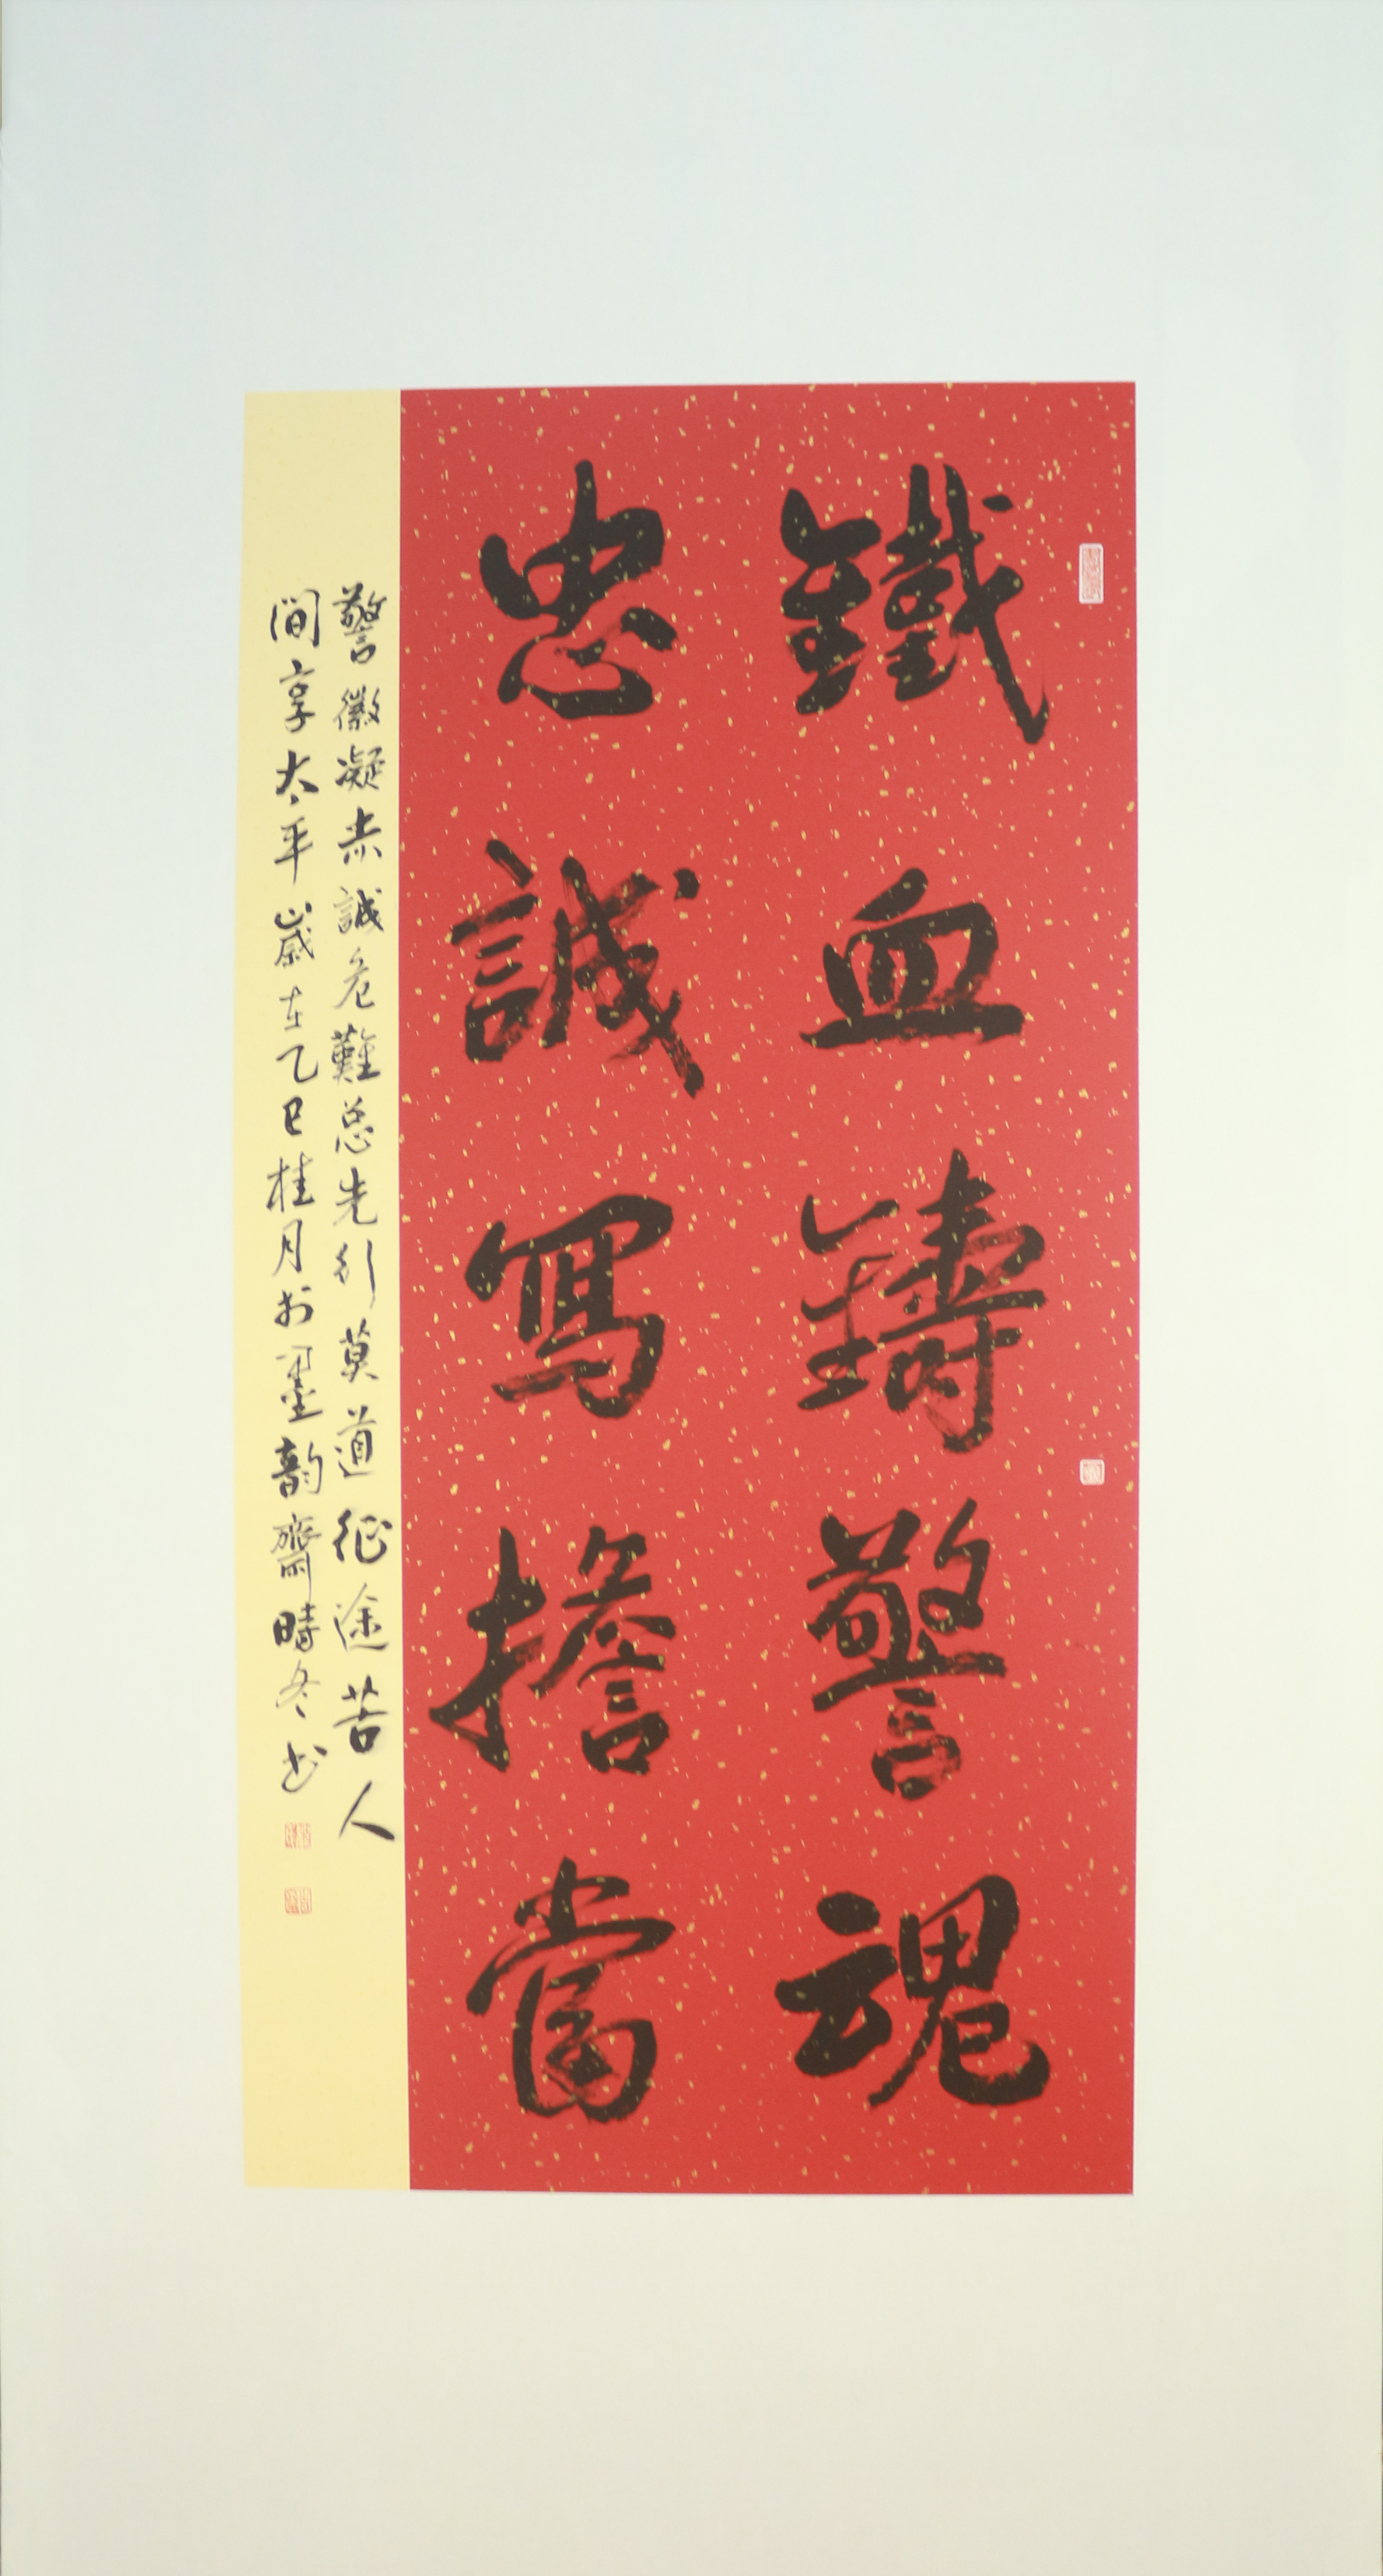 鐵血鑄警魂
忠誠寫擔當
警徽凝赤誠危難总先行莫道征途苦人
间享太平歲在乙巳桂月於墨韵齋時冬书